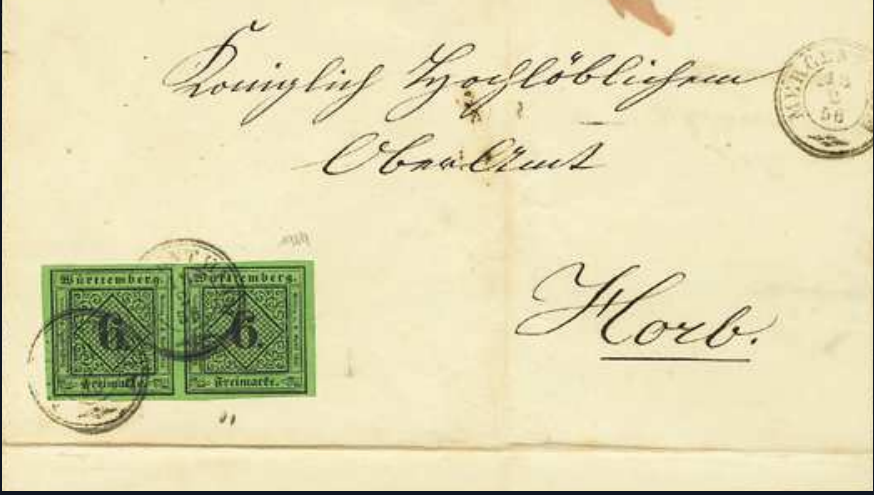 Königlich Hochlöblichem
OberAmt
Horb.
MERGEN
56
Württemberg.
6.
Freimarke.
Württemberg.
6.
Freimarke.